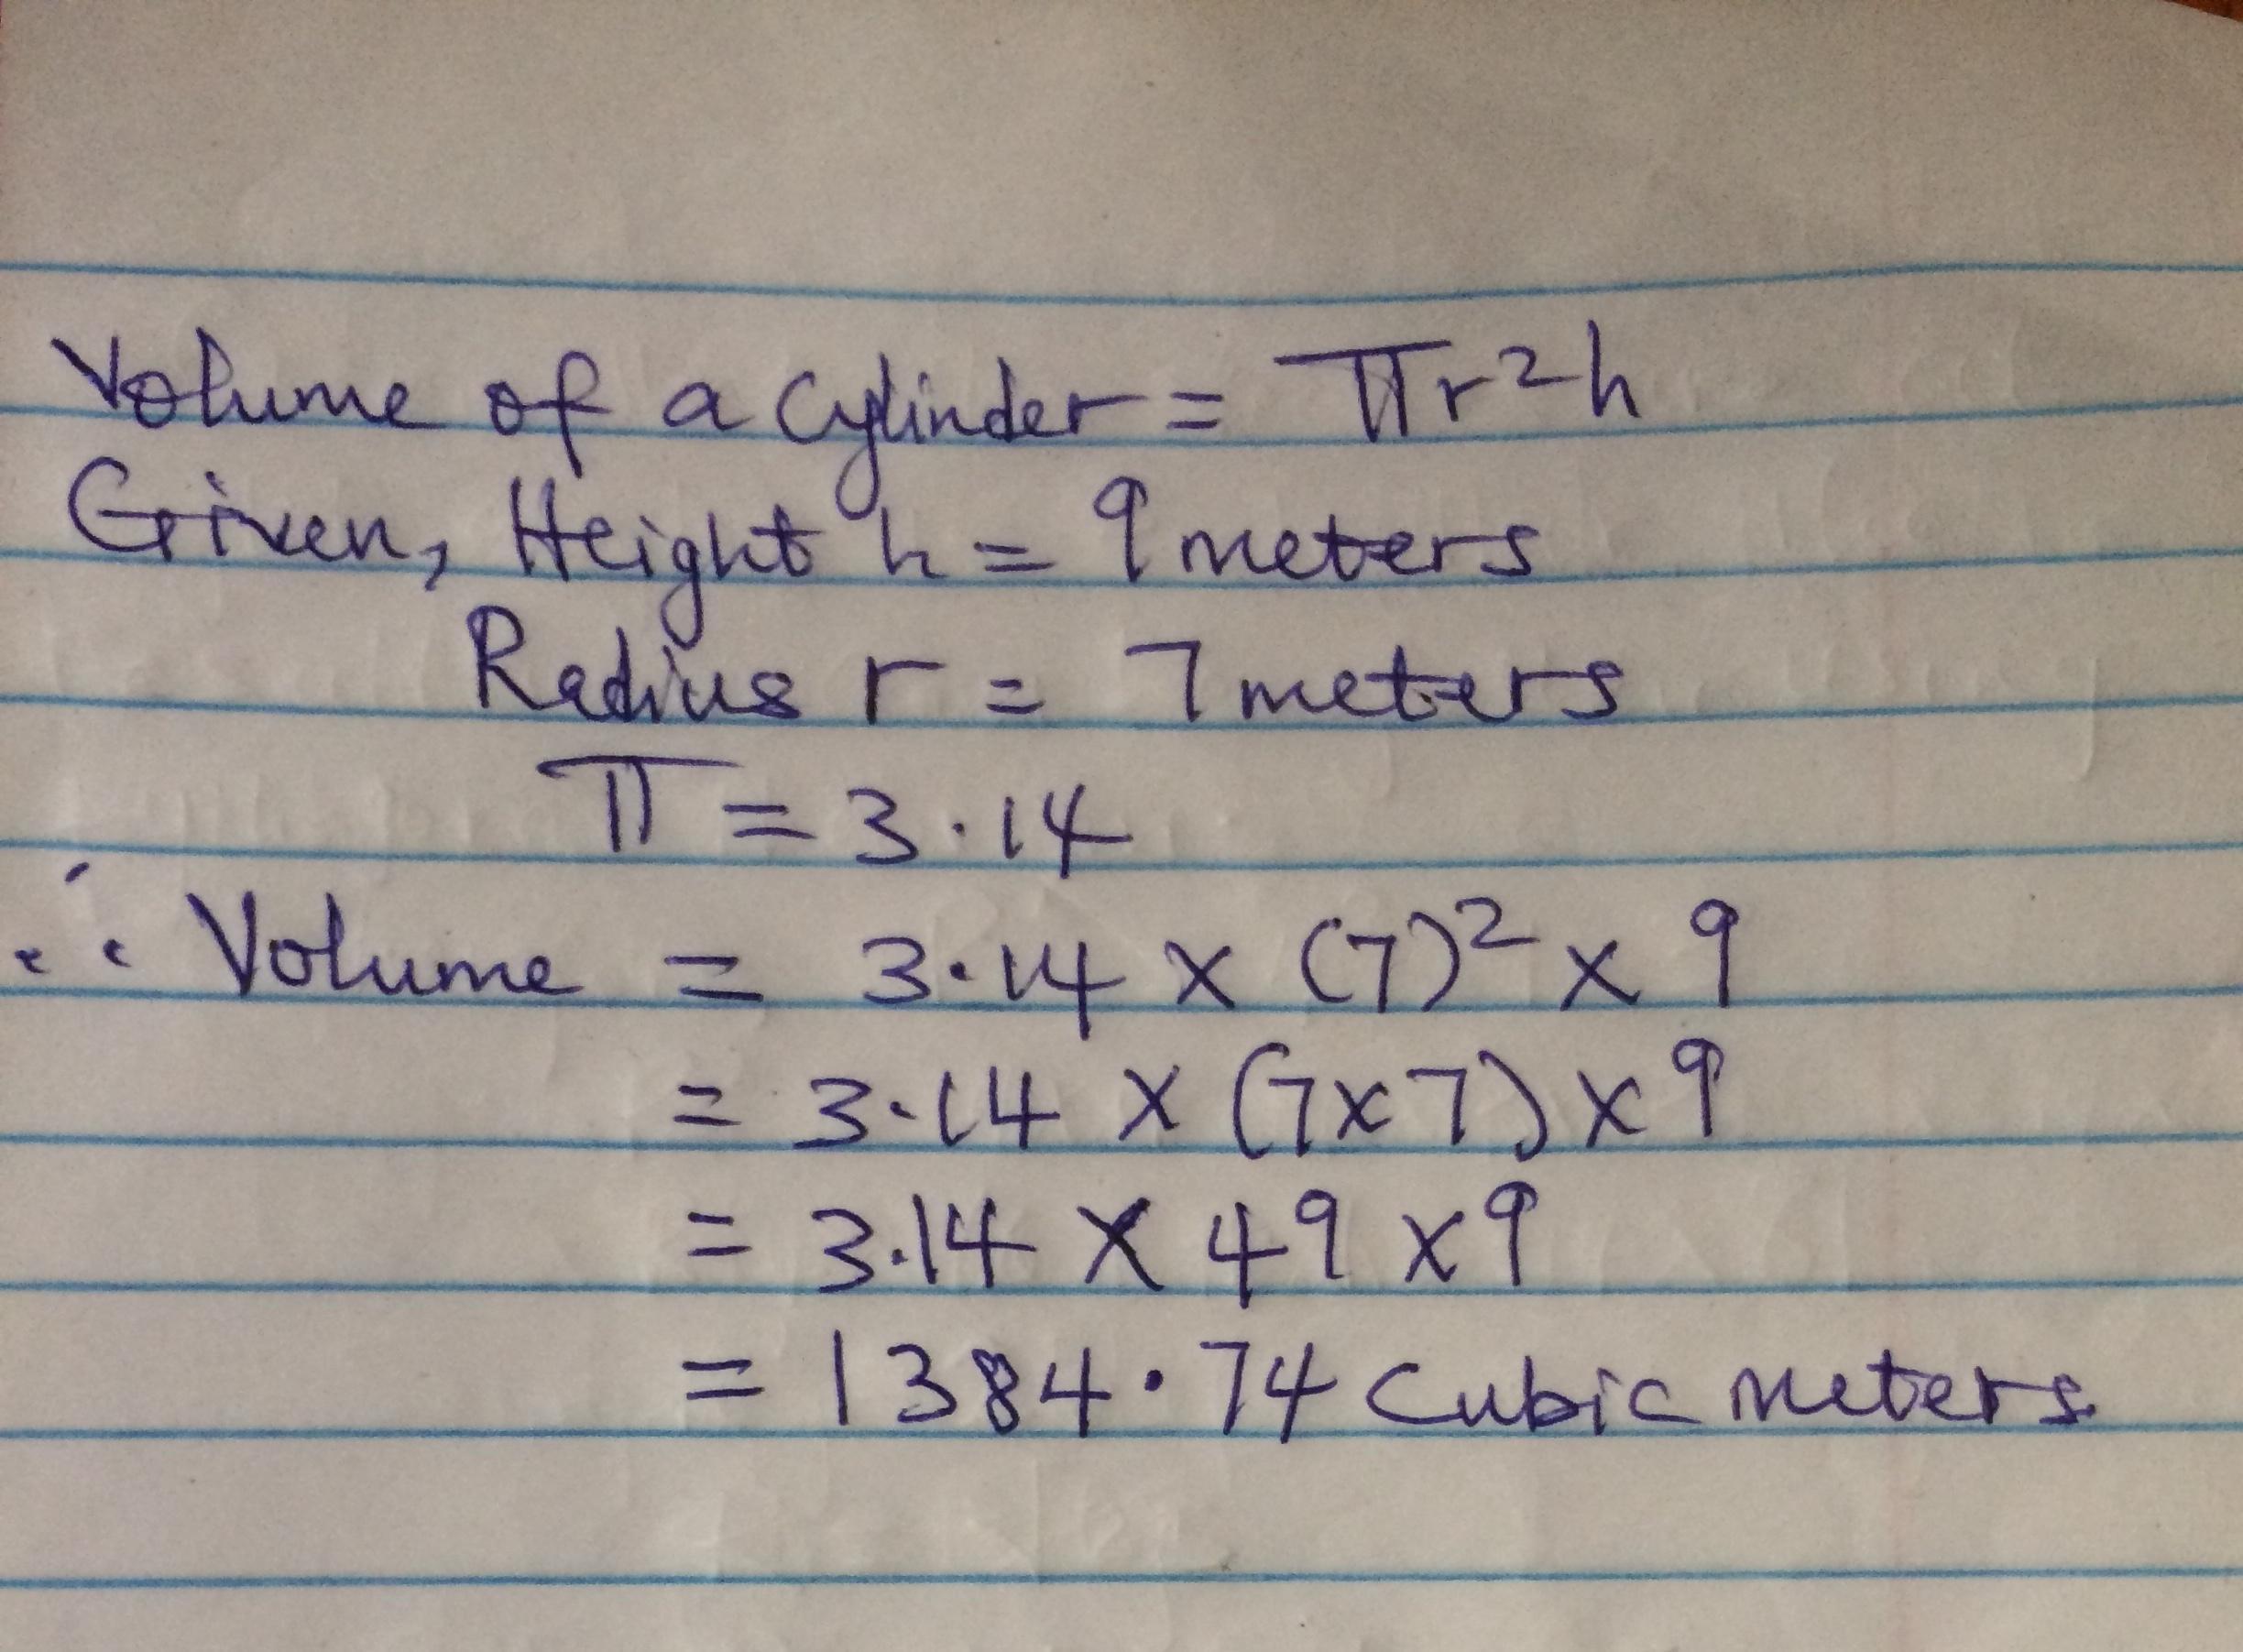 Volume of a Cylinder = πr²h
Given, Height h = 9 meters
Radius r = 7 meters
π = 3.14
∴ Volume = 3.14 × (7)² × 9
= 3.14 × (7×7) × 9
= 3.14 × 49 × 9
= 1384.74 Cubic meters